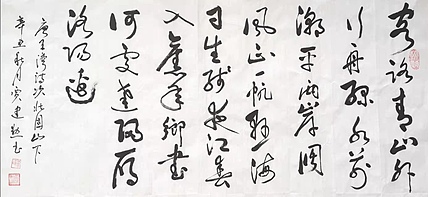 客路青山外
行舟綠水前
潮平兩岸闊
風正一帆懸海
日生殘夜江春
入舊年鄉書
何處達歸雁
洛陽邊
唐王灣詩次北固山下
辛丑秋月建書